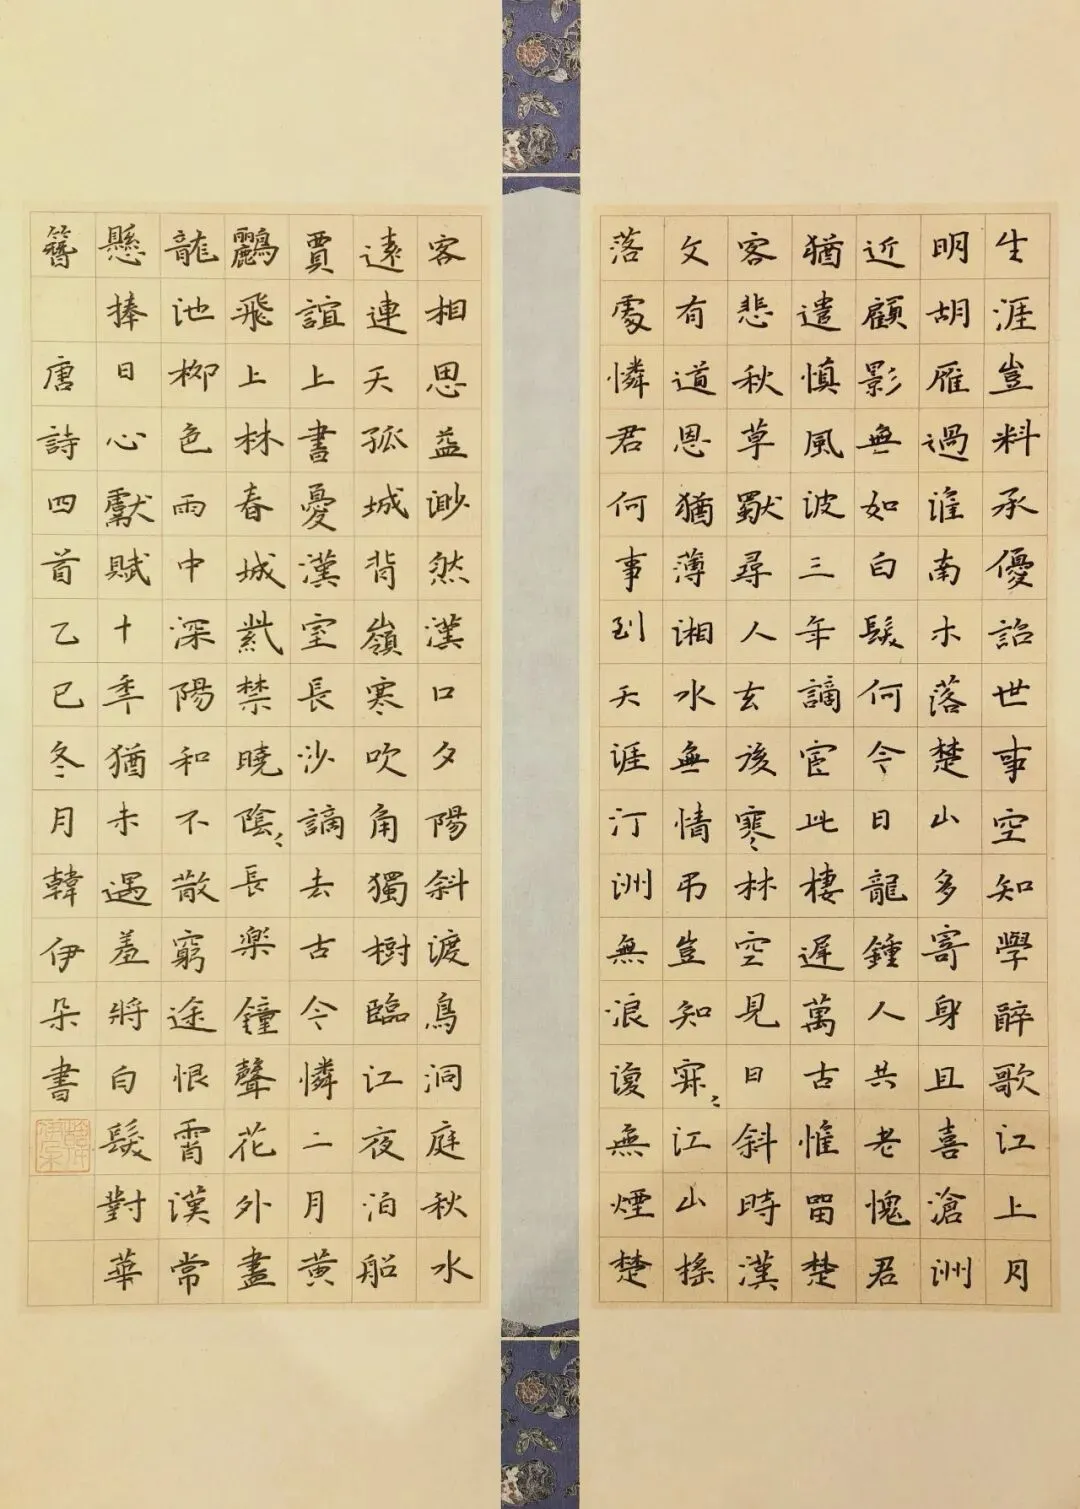 生涯豈料承優詔世事空知學醉歌江上月
明胡雁過淮南木落楚山多寄身且喜滄洲
近顧影無如白髮何今日龍鍾人共老愧君
猶遣慎風波三年謫宦此棲遲萬古惟留楚
客悲秋草獨尋人去後寒林空見日斜時漢
文有道恩猶薄湘水無情弔豈知寂々江山搖
落處憐君何事到天涯汀洲無浪復無煙楚
客相思益渺然漢口夕陽斜渡鳥洞庭秋水
遠連天孤城背嶺寒吹角獨樹臨江夜泊船
賈誼上書憂漢室長沙謫去古今憐二月黃
鸝飛上林春城紫禁曉陰々長楽鐘聲花外盡
龍池柳色雨中深陽和不散窮途恨霄漢常
懸捧日心獻賦十秊猶未遇羞將白髮對華
簪 唐詩四首乙巳冬月韓伊朵書